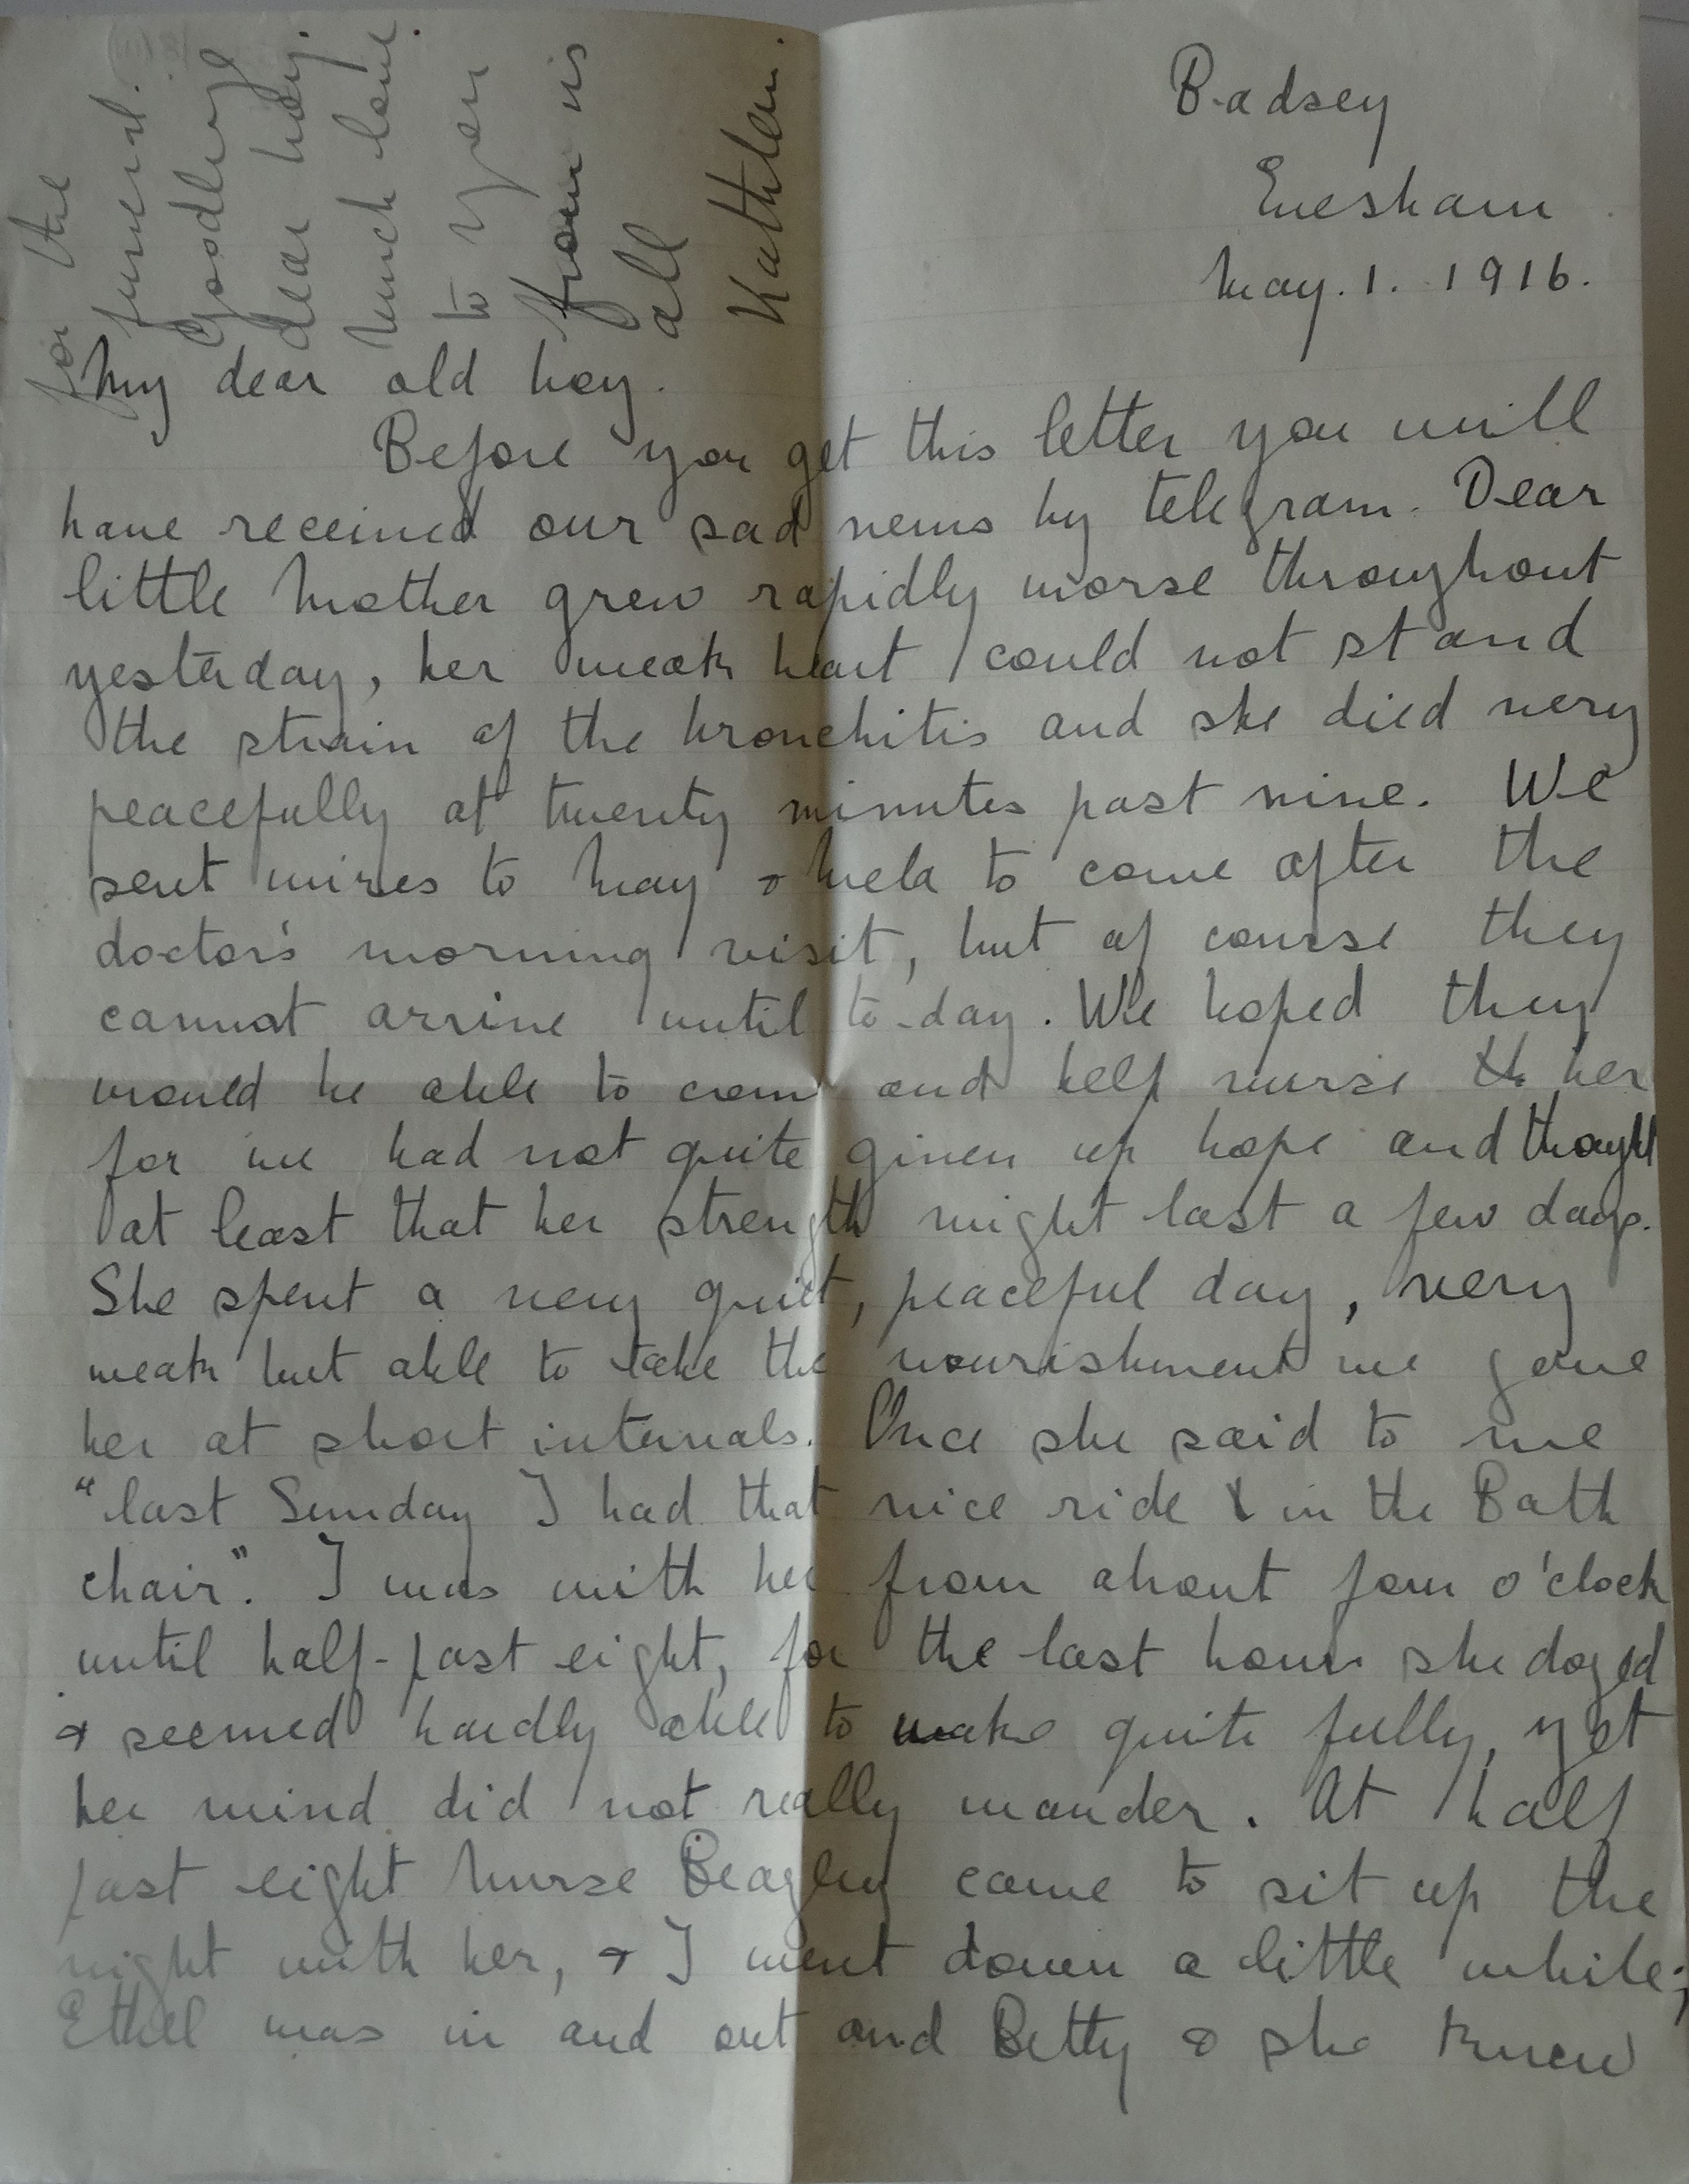 Badsey
Evesham
May. 1. 1916.
My dear old boy.
Before you get this letter you will
have received our sad news by telegram. Dear
little Mother grew rapidly worse throughout
yesterday, her weak heart could not stand
the strain of the bronchitis and she died very
peacefully at twenty minutes past nine. We
sent wires to May & Mela to come after the
doctor's morning visit, but of course they
cannot arrive until to-day. We hoped they
would be able to come and help nurse th her
for we had not quite given up hope and thought
at least that her strength might last a few days.
She spent a very quiet, peaceful day, very
weak but able to take the nourishment we gave
her at short intervals. Once she said to me
"last Sunday I had that nice ride in the Bath
chair". I was with her from about four o'clock
until half-past eight, for the last hour she dozed
& seemed hardly able to wake quite fully, yet
her mind did not really wander. At half
past eight Nurse Beagley came to sit up the
night with her, & I went down a little while;
Ethel was in and out and Betty & she knew
for the
funeral.
Goodbye
dear boy.
Much love.
to you
from us
all
Kathleen.